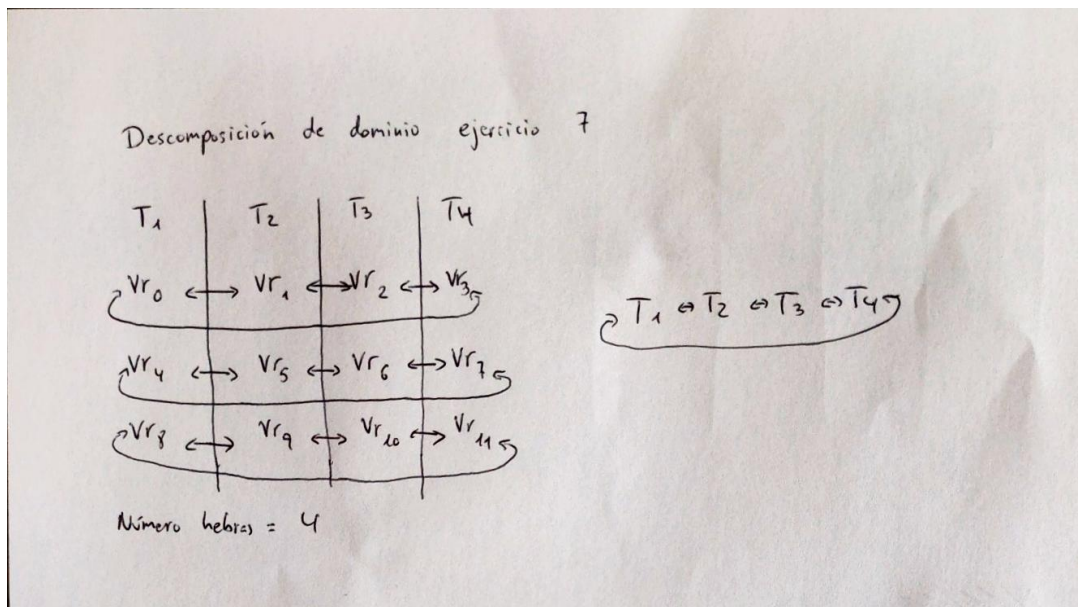 Descomposición de dominio ejercicio 7
T1 T2 T3 T4
Vr0 ↔ Vr1 ↔ Vr2 ↔ Vr3
T1 ↔ T2 ↔ T3 ↔ T4
Vr4 ↔ Vr5 ↔ Vr6 ↔ Vr7
Vr8 ↔ Vr9 ↔ Vr10 ↔ Vr11
Número hebras = 4